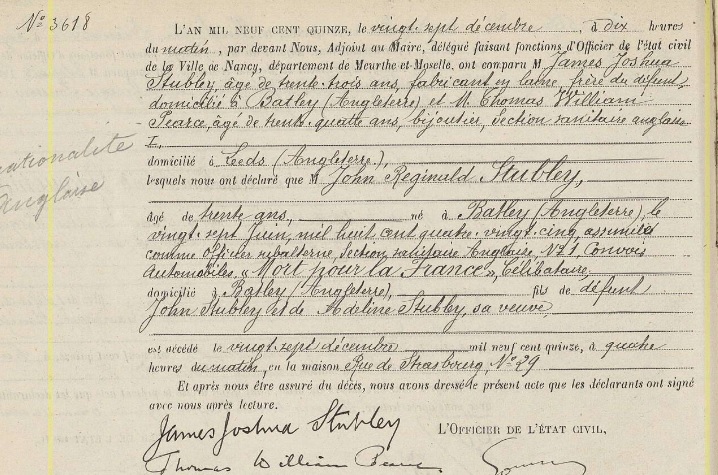 N° 3618
L'AN MIL NEUF CENT QUINZE, le vingt-sept décembre, à dix heures
du matin, par devant Nous, Adjoint au Maire, délégué faisant fonctions d'Officier de l'état civil
de la Ville de Nancy, département de Meurthe-et-Moselle, ont comparu M. James Joshua
Stubley, âgé de trente-trois ans, fabricant en laine, frère du défunt,
domicilié à Batley (Angleterre) et M. Thomas William
Pearce, âgé de trente-quatre ans, bijoutier, Section sanitaire anglaise
domicilié à Leeds (Angleterre),
nationalité
anglaise
lesquels nous ont déclaré que M John Reginald Stubley,
âgé de trente ans, né à Batley (Angleterre), le
vingt-sept Juin, mil huit cent quatre-vingt-cinq, assimilé
comme Officier subalterne, Section sanitaire Anglaise, N° 1, Convois
Automobiles, « Mort pour la France », Célibataire,
domicilié à Batley (Angleterre), fils de défunt
John Stubley et de Adeline Stubley, sa veuve
est décédé le vingt-sept décembre mil neuf cent quinze, à quatre
heures du matin, en la maison Rue de Strasbourg, N° 29
Et après nous être assuré du décès, nous avons dressé le présent acte que les déclarants ont signé
avec nous après lecture.
James Joshua Stubley
L'OFFICIER DE L'ÉTAT CIVIL,
Thomas William Pearce